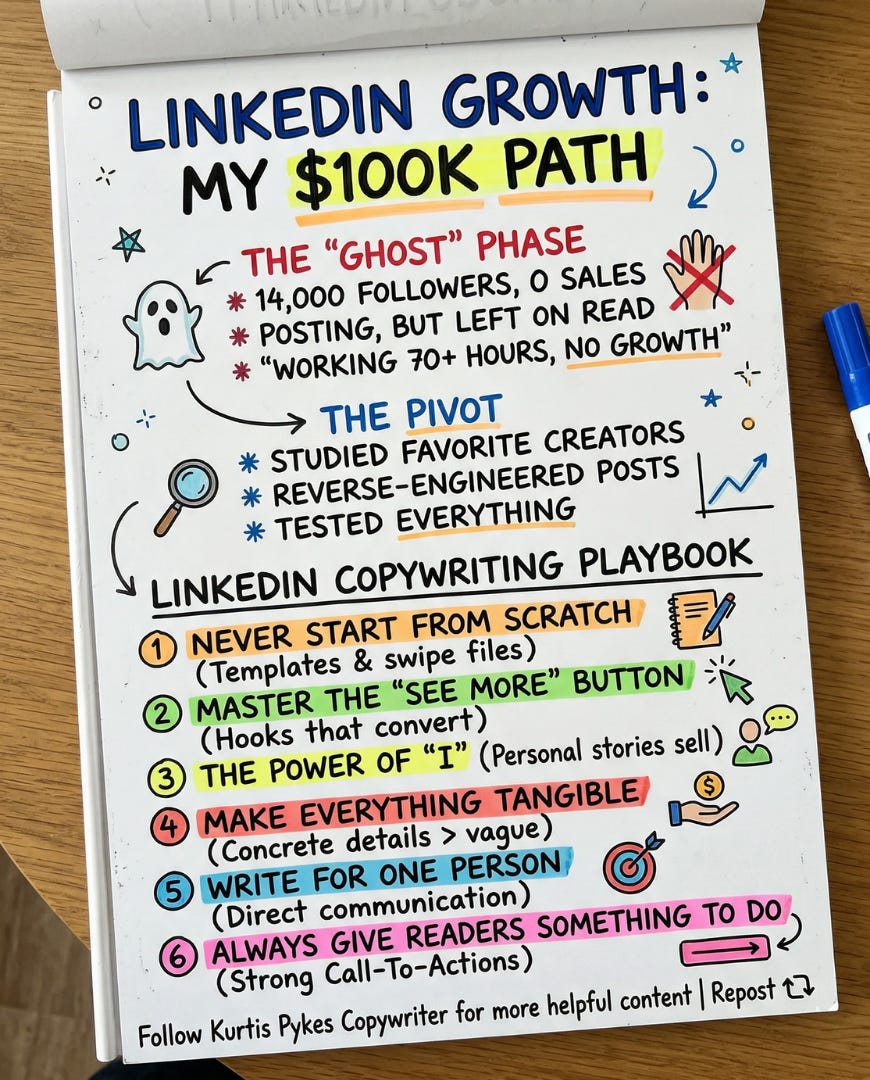 LINKEDIN GROWTH:
MY $100K PATH
THE “GHOST” PHASE
* 14,000 FOLLOWERS, 0 SALES
* POSTING, BUT LEFT ON READ
* “WORKING 70+ HOURS, NO GROWTH”
THE PIVOT
* STUDIED FAVORITE CREATORS
* REVERSE-ENGINEERED POSTS
* TESTED EVERYTHING
LINKEDIN COPYWRITING PLAYBOOK
1 NEVER START FROM SCRATCH
(Templates & swipe files)
2 MASTER THE “SEE MORE” BUTTON
(Hooks that convert)
3 THE POWER OF “I” (Personal stories sell)
4 MAKE EVERYTHING TANGIBLE
$
(Concrete details > vague)
5 WRITE FOR ONE PERSON
(Direct communication)
6 ALWAYS GIVE READERS SOMETHING TO DO
(Strong Call-To-Actions)
Follow Kurtis Pykes Copywriter for more helpful content | Repost